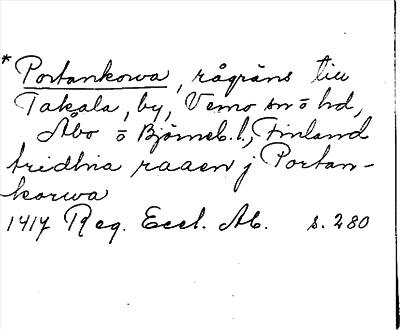 * Portankorva, rågräns till
Takala, by, Vemo sn o hd,
Åbo o Björneb. l., Finland
tridhia raaen j Portan-
korwa
1417 Reg. Eccl. Ab. s. 280